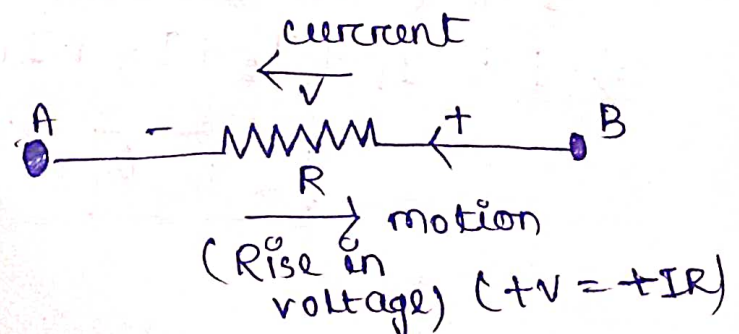 current
V
A - + B
R
motion
(Rise in
voltage) (+V = +IR)